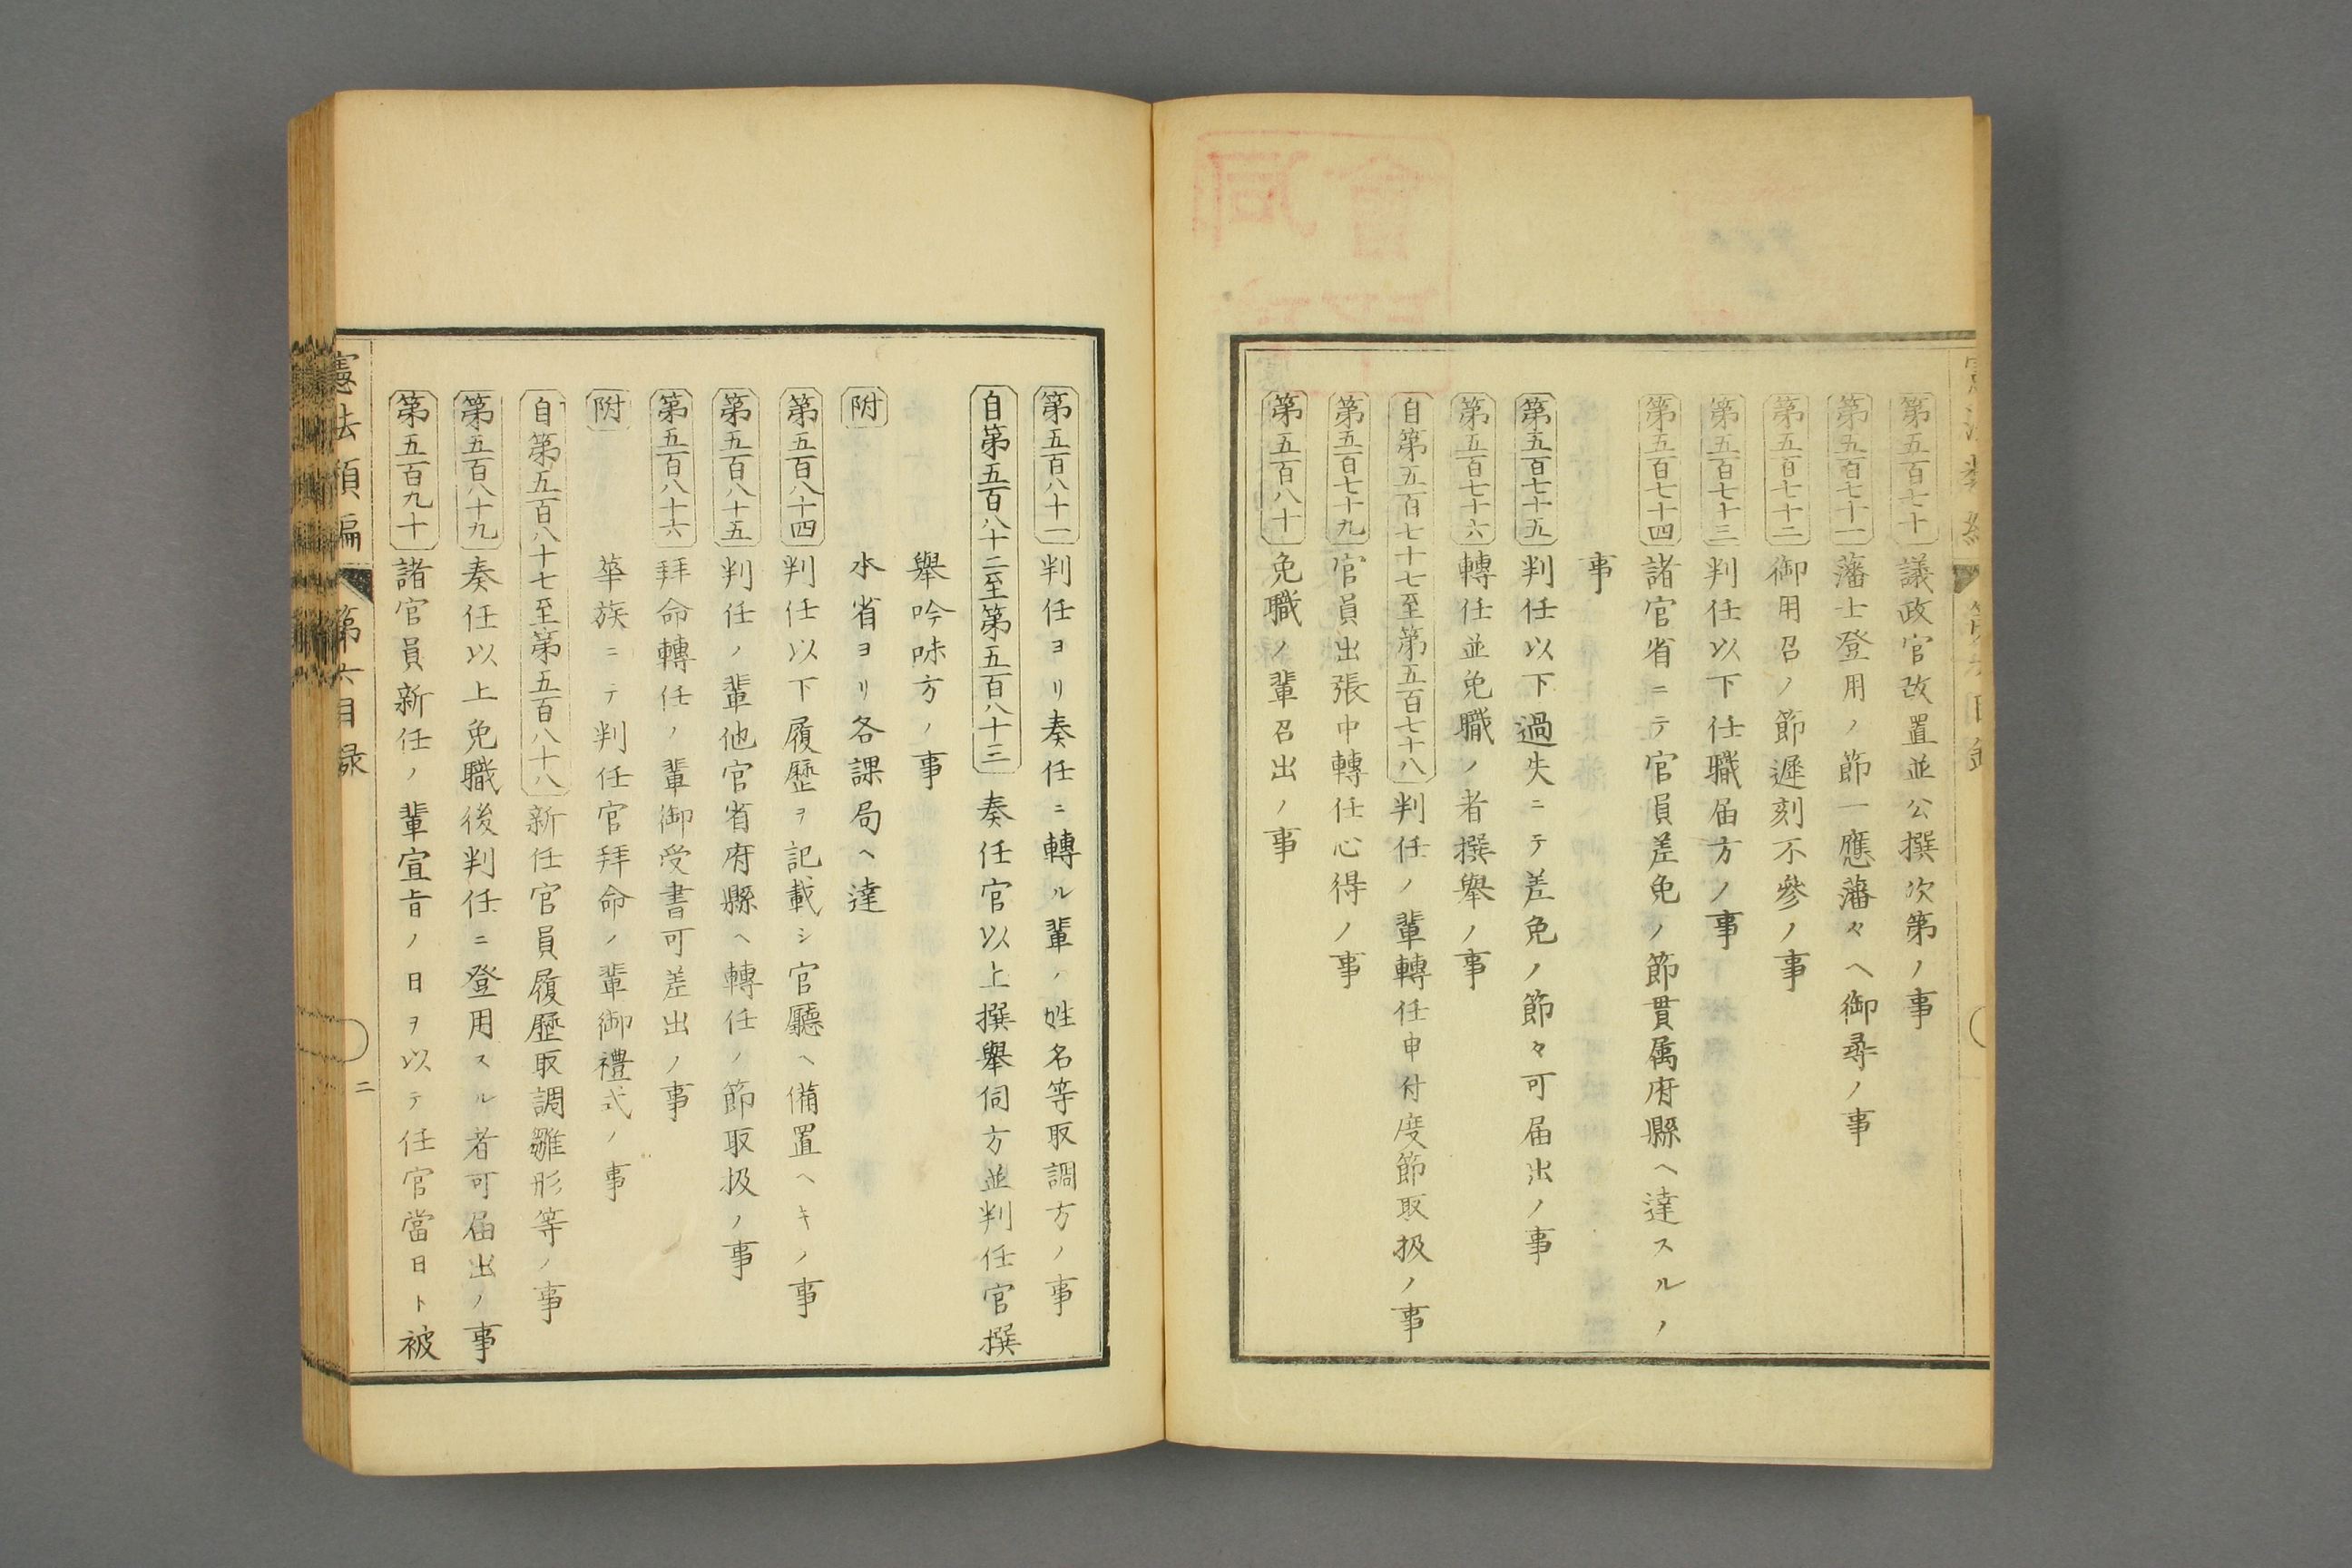 第五百七十 議政官改置並公撰次第ノ事
第五百七十一 藩士登用ノ節一應藩々ヘ御尋ノ事
第五百七十二 御用召ノ節遲刻不參ノ事
第五百七十三 判任以下任職届方ノ事
第五百七十四 諸官省ニテ官員差免ノ節貫属府縣ヘ達スルノ
事
第五百七十五 判任以下過失ニテ差免ノ節々可届出ノ事
第五百七十六 轉任並免職ノ者撰舉ノ事
自第五百七十七至第五百七十八 判任ノ輩轉任申付度節取扱ノ事
第五百七十九 官員出張中轉任心得ノ事
第五百八十 免職ノ輩召出ノ事
第五百八十一 判任ヨリ奏任ニ轉ル輩ノ姓名等取調方ノ事
自第五百八十二至第五百八十三 奏任官以上撰舉伺方並判任官撰
舉吟味方ノ事
附 本省ヨリ各課局ヘ達
第五百八十四 判任以下履歴ヲ記載シ官廳ヘ備置ヘキノ事
第五百八十五 判任ノ輩他官省府縣ヘ轉任ノ節取扱ノ事
第五百八十六 拜命轉任ノ輩御受書可差出ノ事
附 華族ニテ判任官拜命ノ輩御禮式ノ事
自第五百八十七至第五百八十八 新任官員履歴取調雛形等ノ事
第五百八十九 奏任以上免職後判任ニ登用スル者可届出ノ事
第五百九十 諸官員新任ノ輩宣旨ノ日ヲ以テ任官當日ト被
憲法類編 第六目録
二